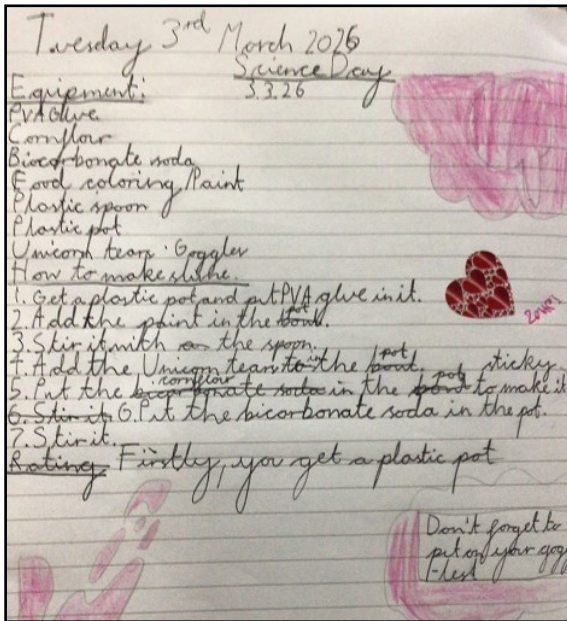 Tuesday 3rd March 2026
Science Day
3.3.26
Equipment:
PVA Glue
Cornflour
Biocarbonate soda
Food coloring/Paint
Plastic spoon
Plastic pot
Unicorn tears. Goggles
How to make slime.
1. Get a plastic pot and put PVA glue in it.
2. Add the paint in the bowl. pot
3. Stir it with the spoon.
4. Add the Unicorn tears to in the bowl. pot
sticky.
5. Put the bicarbonate soda cornflour in the pot to make it
6. Stir it. 6. Put the bicorbonate soda in the pot.
7. Stir it.
Rating Firstly, you get a plastic pot
Don't forget to
put on your gog
-les!